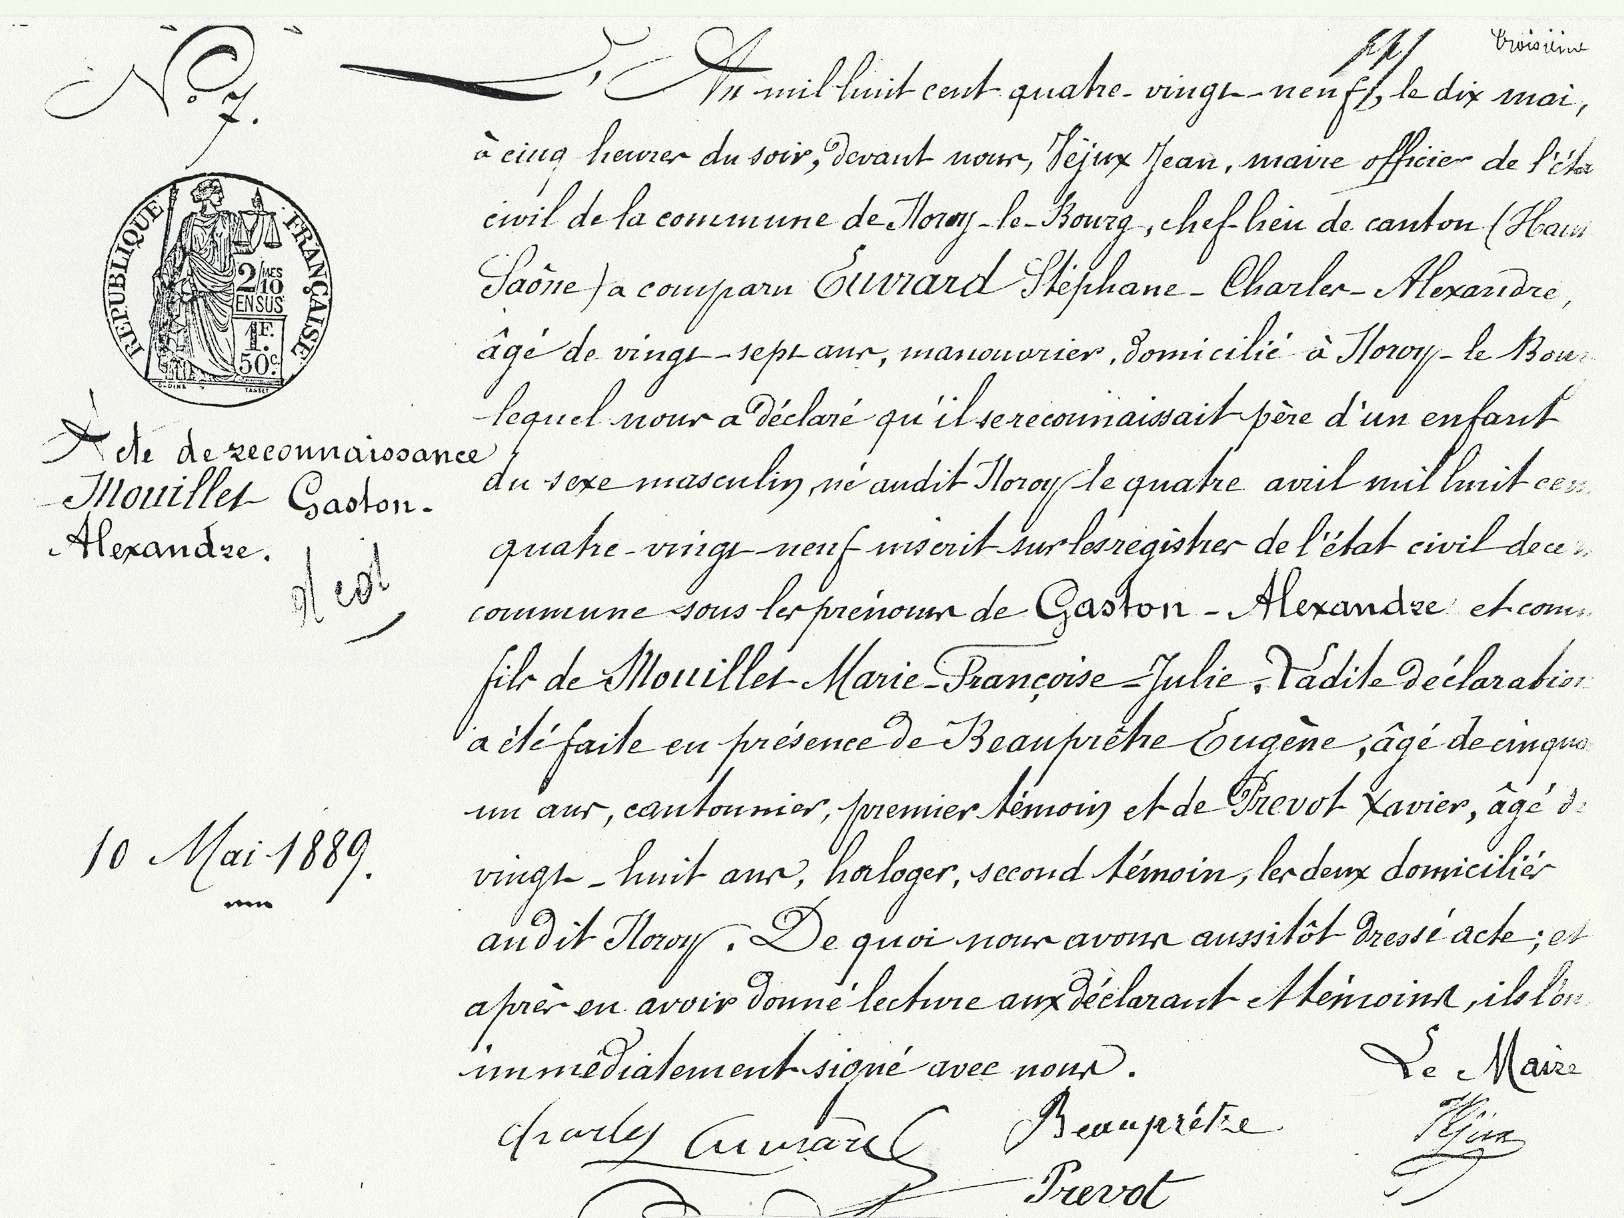 Troisième
N° 7.
L'An mil huit cent quatre-vingt-neuf, le dix mai,
à cinq heures du soir, devant nous, Véjux Jean, maire officier de l'éta
civil de la commune de Noroy-le-Bourg, chef-lieu de canton (Haut
Saône) a comparu Euvrard Stéphane-Charles-Alexandre,
âgé de vingt-sept ans, manouvrier, domicilié à Noroy-le Bour
lequel nous a déclaré qu'il se reconnaissait père d'un enfant
du sexe masculin, né audit Noroy le quatre avril mil huit cen
quatre-vingt-neuf inscrit sur les registres de l'état civil de ce
commune sous les prénoms de Gaston-Alexandre et com
fils de Mouillet Marie-Françoise-Julie. Ladite déclaration
a été faite en présence de Beauprêtre Eugène, âgé de cinqua
un ans, cantonnier, premier témoin et de Prevot Xavier, âgé d
vingt-huit ans, horloger, second témoin, les deux domiciliés
audit Noroy. De quoi nous avons aussitôt dressé acte; et
après en avoir donné lecture aux déclarant et témoins, ils l'on
immédiatement signé avec nous.
Le Maire
Charles Euvrard
Beauprêtre
Véjux
Prevot
RÉPUBLIQUE FRANÇAISE
2/10 MES
EN SUS
1F.
50c.
Acte de reconnaissance
Mouillet Gaston-
Alexandre.
10 Mai 1889.